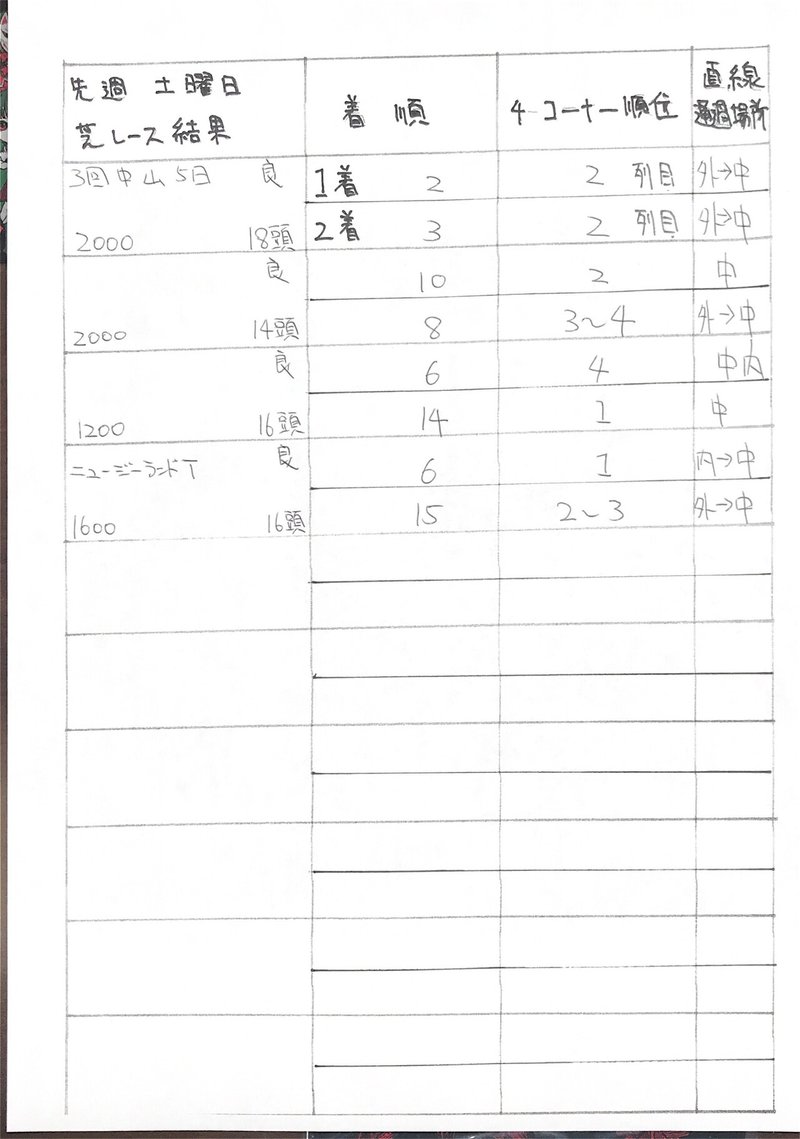 先週 土曜日 芝レース結果 着順 4コーナー順位 直線通過場所
3回中山5日 良 1着 2 2列目 外→中
2000 18頭 2着 3 2列目 外→中
良 10 2 中
2000 14頭 8 3〜4 外→中
良 6 4 中内
1200 16頭 14 1 中
ニュージーランドT 良 6 1 内→中
1600 16頭 15 2〜3 外→中